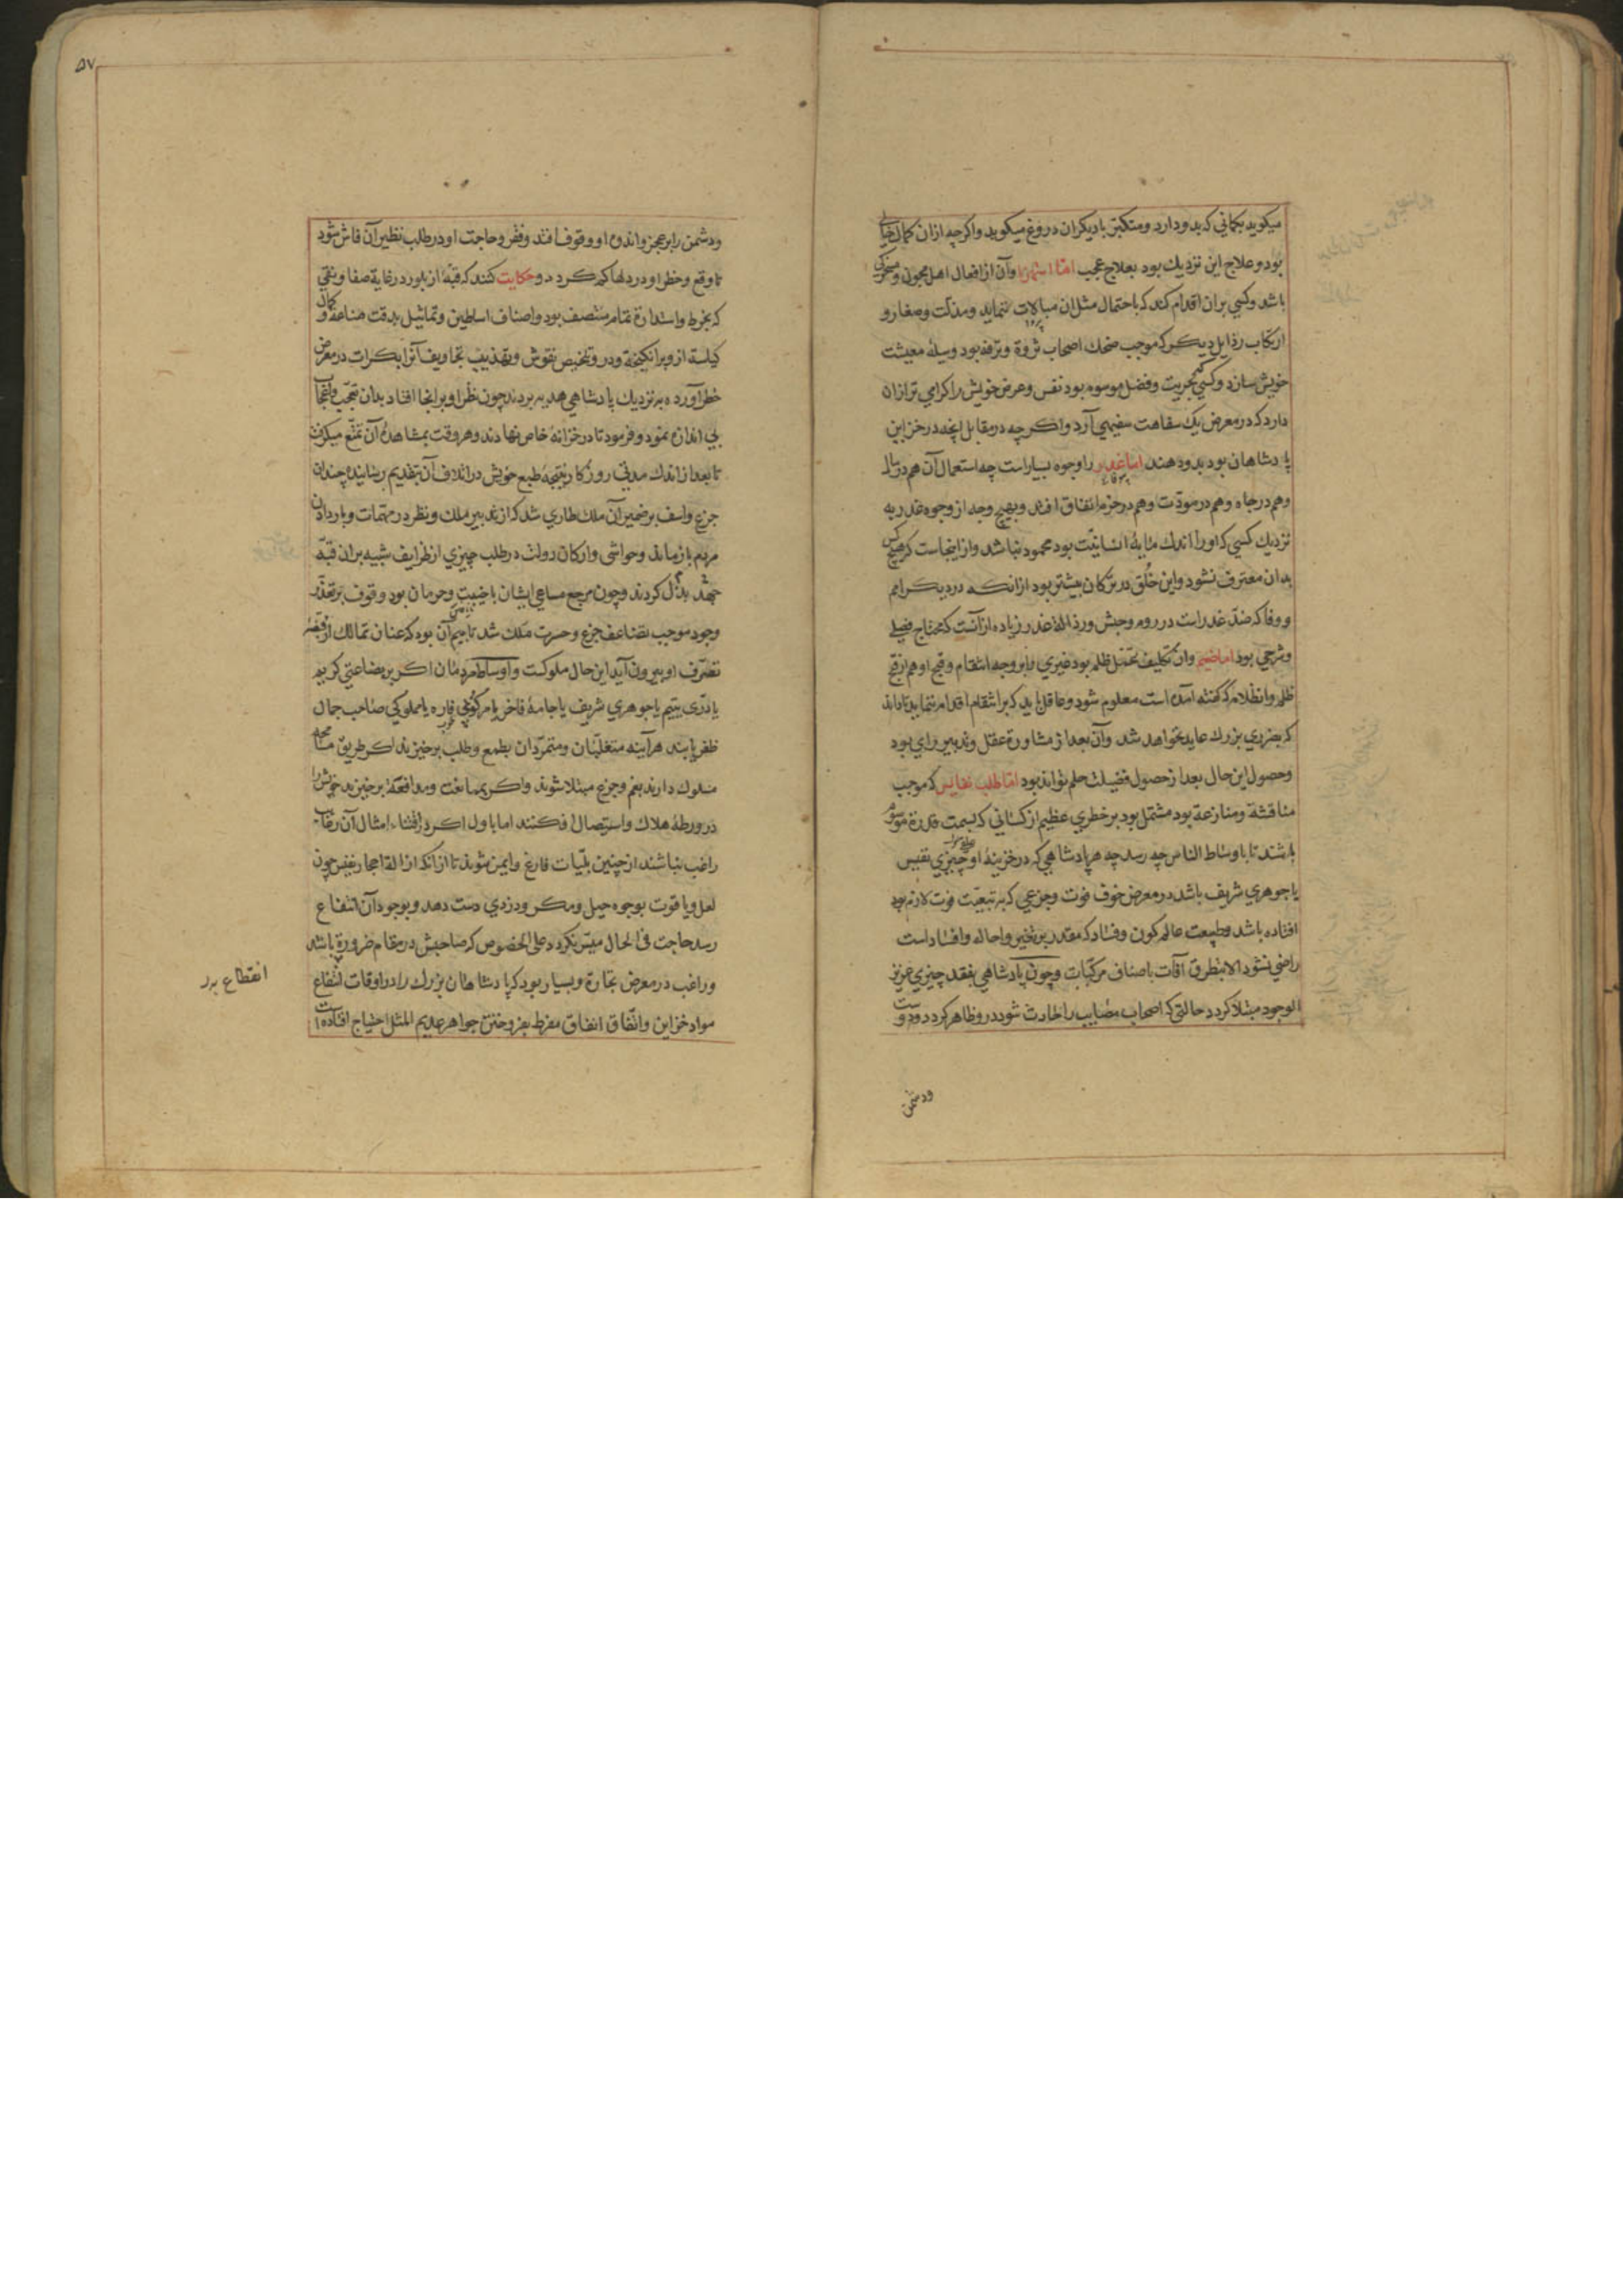 میکوید بکمانی که بدو دارد ومتکبر بادیکران دروغ میکوید واکرچه ازان کمال خالی
بود وعلاج این نزدیك بود بعلاج عجب امّا استهزا وآن از افعال اهل مجون ومسخرکی
باشد وکسی بران اقدام کند که باحتمال مثل ان مبالات ننماید ومذلّت وصغار و
ارتکاب رذایل دیکر که موجب ضحك اصحاب ثروة وترفه بود وسیلۀ معیشت
خویش سازد وکسی که بحریت وفضل موسوم بود نفس وعرض خویش را کرامی تر ازان
دارد که در معرض یك سفاهت سفیهی آرد واکرچه در مقابل انچه در خزاین
پادشاهان بود بدو دهند اما غدر را وجوه بسیار است چه استعمال آن هم در مال
وهم در جاه وهم در مودّت وهم در حرم اتفاق افتد وبهیچ وجه از وجوه غدر به
نزدیك کسی که اورا اندك مایۀ انسانیّت بود محمود نباشد واز اینجاست که هیچ کس
بدان معترف نشود واین خُلق در ترکان بیشتر بود ازانکه در دیکر امم
ووفا که ضدّ غدر است در روم وحبش ورذالة غدر زیاده ازانست که محتاج فضلی
وشرحی بود اما ضیم وان تکلیف تحمّل ظلم بود غیری را بر وجه انتقام وقبح او هم از قبح
ظلم وانظلام که کفته امده است معلوم شود وعاقل باید که بر انتقام اقدام ننماید تا داند
که بضرری بزرك عاید نخواهد شد وآن بعد از مشاورة عقل وتدبیر رای بود
وحصول این حال بعد از حصول فضیلت حلم تواند بود امّا طلب نفایس که موجب
مناقشة ومنازعة بود مشتمل بود بر خطری عظیم از کسانی که بسمت قدرة موسوم
باشند تا باوساط الناس چه رسد چه هر پادشاهی که در خزینۀ او چیزی نفیس
یا جوهری شریف باشد در معرض خوف فوت وجزعی که به تبعیّت فوت لازم بود
افتاده باشد وطبیعت عالم کون وفساد که مقدر بر تغیر واحاله وافساد است
راضی نشود الا بتطرق آفات باصناف مرکّبات وچون پادشاهی بفقد چیزی عزیز
الوجود مبتلا کردد حالتی که اصحاب مصایب را حادث شود درو ظاهر کردد ودوست
ودشمن
۵۷
ودشمن را بر عجز واندوه او وقوف افتد وفقر وحاجت او در طلب نظیر آن فاش شود
تا وقع وخطر او در دلها کم کردد وحکایت کنند که قبّۀ از بلور در غایة صفا ونقی
که بخرط واستدارة تمام متّصف بود واصناف اساطین وتماثیل بدقت صناعة وکمال
کیاسة ازو برانکیخته ودر وتخلیص نقوش وتهذیب تجاویف آنرا بکرات در معرض
خطر آورده به نزدیك پادشاهی هدیه بردند چون نظر او بر انجا افتاد بدان تعجّب واعجاب
بی اندازه نمود وفرمود تا در خزانۀ خاص نهادند وهر وقت بمشاهدۀ آن تمتّع میکرفت
تا بعد از اندك مدتی روزکار نتیجۀ طبع خویش در اتلاف آن بتقدیم رسانید چندان
جزع واسف بر ضمیر آن ملك طاری شد که از تدبیر ملك ونظر در مهمّات وبار دادن
مردم بازماند وحواشی وارکان دولت در طلب چیزی از ظرایف شبیه بران قبّه
جهد بذل کردند وچون مرجع مساعی ایشان با خیبت وحرمان بود وقوف بر تعذّر
وجود موجب تضاعف جزع وحسرت ملك شد تا بیم آن بود که عنان تمالك از قبضۀ
تصرّف او بیرون آید این حال ملوکست واوساط مردمان اکر بر بضاعتی کریم
یا دُرّی یتیم یا جوهری شریف یا جامۀ فاخر یا مرکوبی فاره یا مملوکی صاحب جمال
ظفر یابند هر آینه متغلبّان ومتمرّدان بطمع وطلب برخیزند اکر طریق مسامحه
مسلوك دارند بغم وجزع مبتلا شوند واکر بممانعت ومدافعة برخیزند خویش را
در ورطۀ هلاك واستیصال افکنند اما باول اکر در اقتناء امثال آن رغایب
راغب نباشند از چنین بلیّات فارغ وایمن شوند تا ازانکه از القا احجار نفیس چون
لعل ویاقوت بوجوه حیل ومکر ودزدی دست دهد وبوجود آن انتفاع
رسد حاجت فی الحال میسّر نکردد علی الخصوص که صاحبش در مقام ضرورة باشد
وراغب در معرض تجارة وبسیار بود که پادشاهان بزرك را در اوقات انقطاع
مواد خزاین واتّفاق انفاق مفرط بفروختن جواهر عدیم المثل احتیاج افتاده است
انقطاع